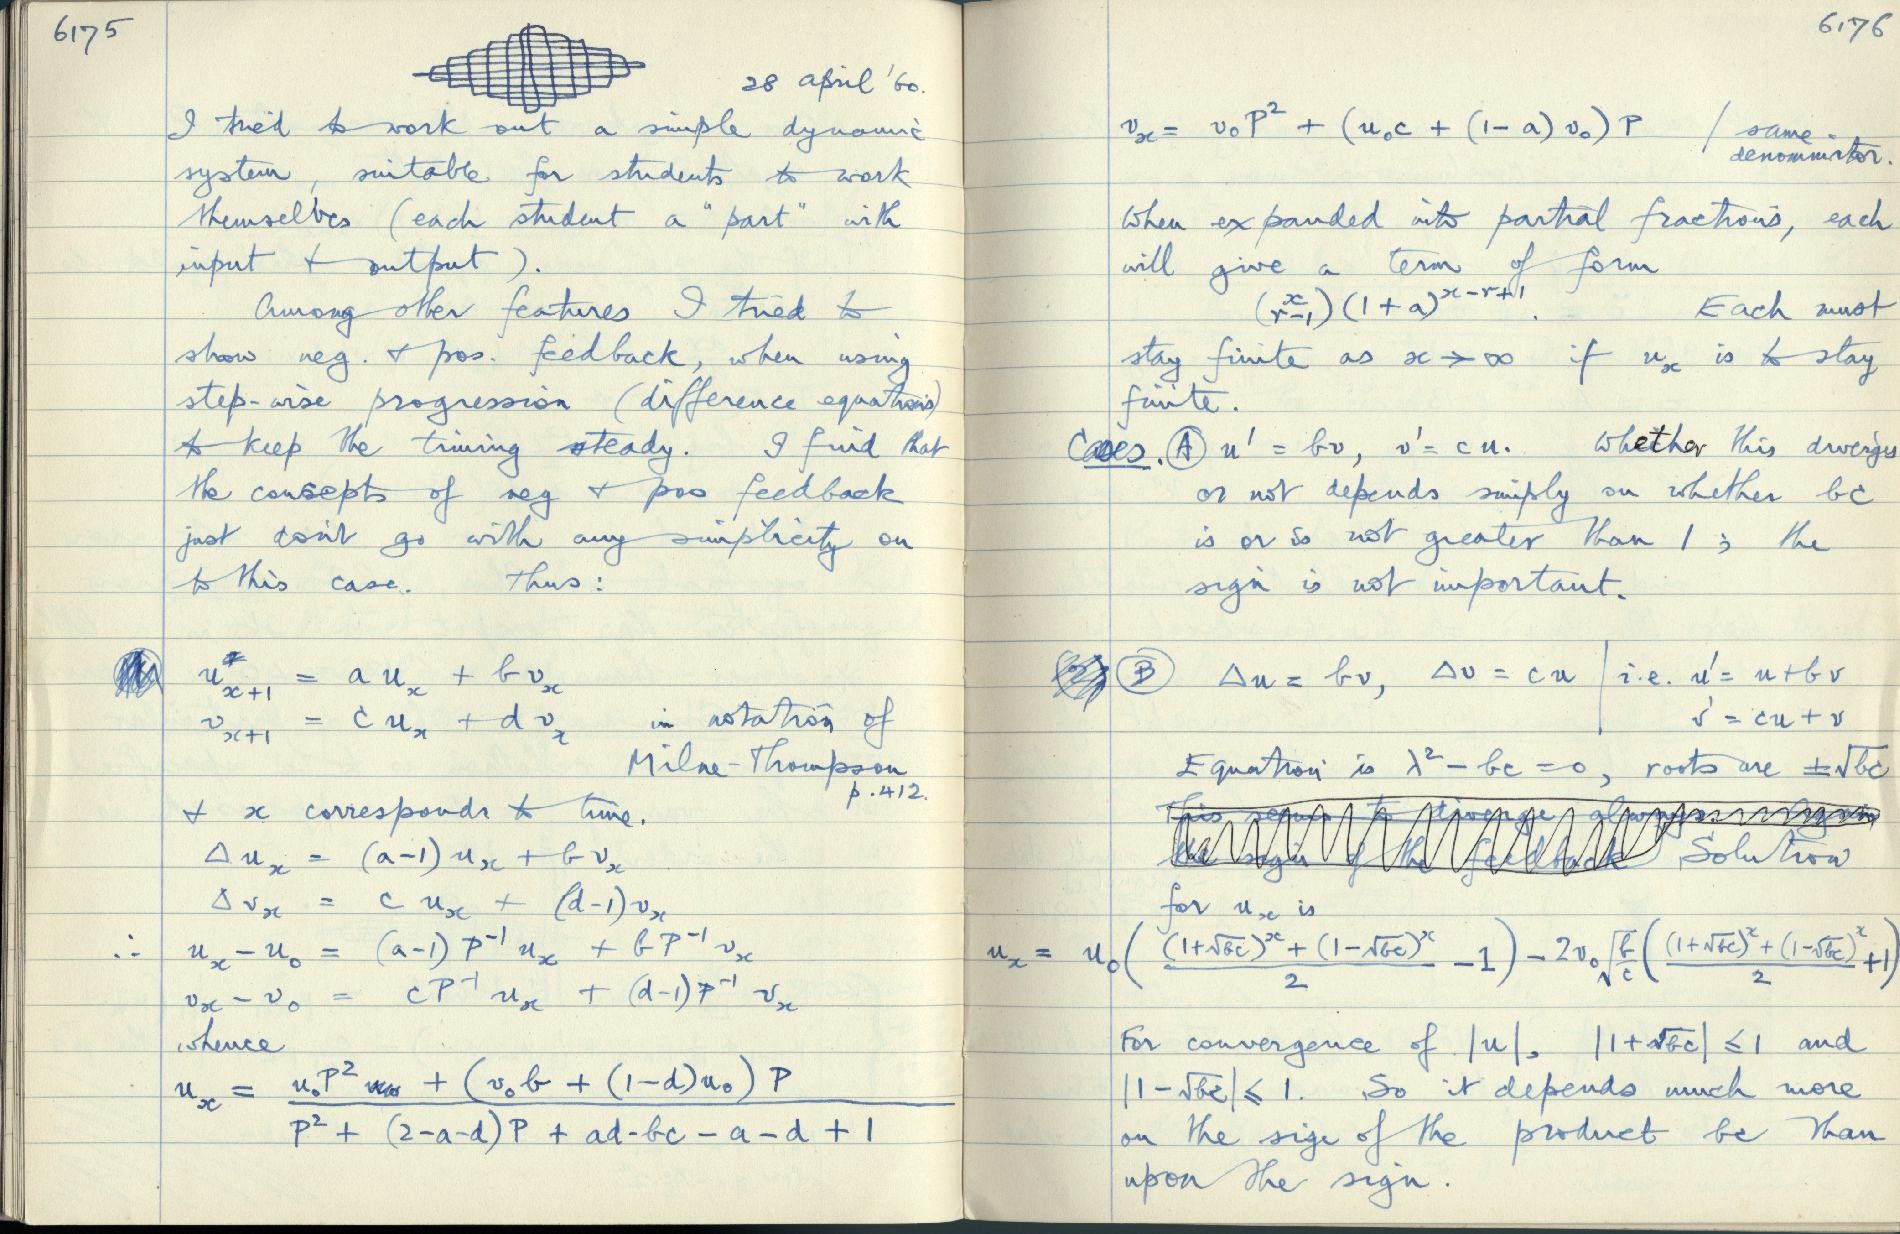 6175
28 april '60.
I tried to work out a simple dynamic
system, suitable for students to work
themselves (each student a "part" with
input & output).
Among other features I tried to
show neg. & pos. feedback, when using
step-wise progression (difference equations)
to keep the timing steady. I find that
the concepts of neg & pos feedback
just don't go with any simplicity on
to this case. Thus:
uₓ₊₁ = a uₓ + b vₓ
vₓ₊₁ = c uₓ + d vₓ in notation of
Milne-Thompson
p. 412.
& x corresponds to time.
Δuₓ = (a-1) uₓ + b vₓ
Δvₓ = c uₓ + (d-1) vₓ
∴ uₓ - u₀ = (a-1) P⁻¹ uₓ + b P⁻¹ vₓ
vₓ - v₀ = c P⁻¹ uₓ + (d-1) P⁻¹ vₓ
whence
uₓ = u₀P² + (v₀b + (1-d)u₀) P
P² + (2-a-d)P + ad-bc-a-d+1
6176
vₓ = v₀P² + (u₀c + (1-a)v₀) P / same
denominator.
When expanded into partial fractions, each
will give a term of form
(x r-1)(1+a)^(x-r+1). Each must
stay finite as x → ∞ if uₓ is to stay
finite.
Cases. Ⓐ u' = bv, v' = cu. Whether this diverges
or not depends simply on whether bc
is or is not greater than 1; the
sign is not important.
Ⓑ Δu = bv, Δv = cu | i.e. u' = u+bv
v' = cu+v
Equation is λ² - bc = 0, roots are ±√bc
This seems to diverge always
the sign of the feedback Solution
for uₓ is
uₓ = u₀( ((1+√bc)ˣ + (1-√bc)ˣ)/2 - 1 ) - 2v₀ √(b/c) ( ((1+√bc)ˣ + (1-√bc)ˣ)/2 + 1 )
For convergence of |u|, |1+√bc| ≤ 1 and
|1-√bc| ≤ 1. So it depends much more
on the size of the product bc than
upon the sign.